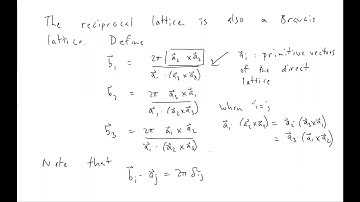 The reciprocal lattice is also a Bravais
lattice. Define
b⃗₁ = 2π (a⃗₂ × a⃗₃) / a⃗₁ · (a⃗₂ × a⃗₃)
a⃗ᵢ : primitive vectors
of the direct
lattice
b⃗₂ = 2π a⃗₃ × a⃗₁ / a⃗₁ · (a⃗₂ × a⃗₃)
b⃗₃ = 2π a⃗₁ × a⃗₂ / a⃗₁ · (a⃗₂ × a⃗₃)
when i=j
a⃗₁ · (a⃗₂ × a⃗₃) = a⃗₂ · (a⃗₃ × a⃗₁)
= a⃗₃ · (a⃗₁ × a⃗₂)
Note that
b⃗ᵢ · a⃗ⱼ = 2π δᵢⱼ